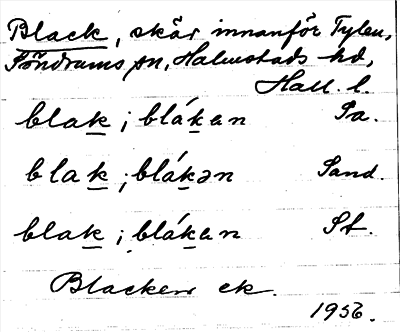 Black, skär innanför Tylön,
Söndrums sn, Halmstads hd,
Hall. l.
blak; blákan Pa.
blak; blákən Sand.
blak; blákan St.
Blacken ek.
1956.